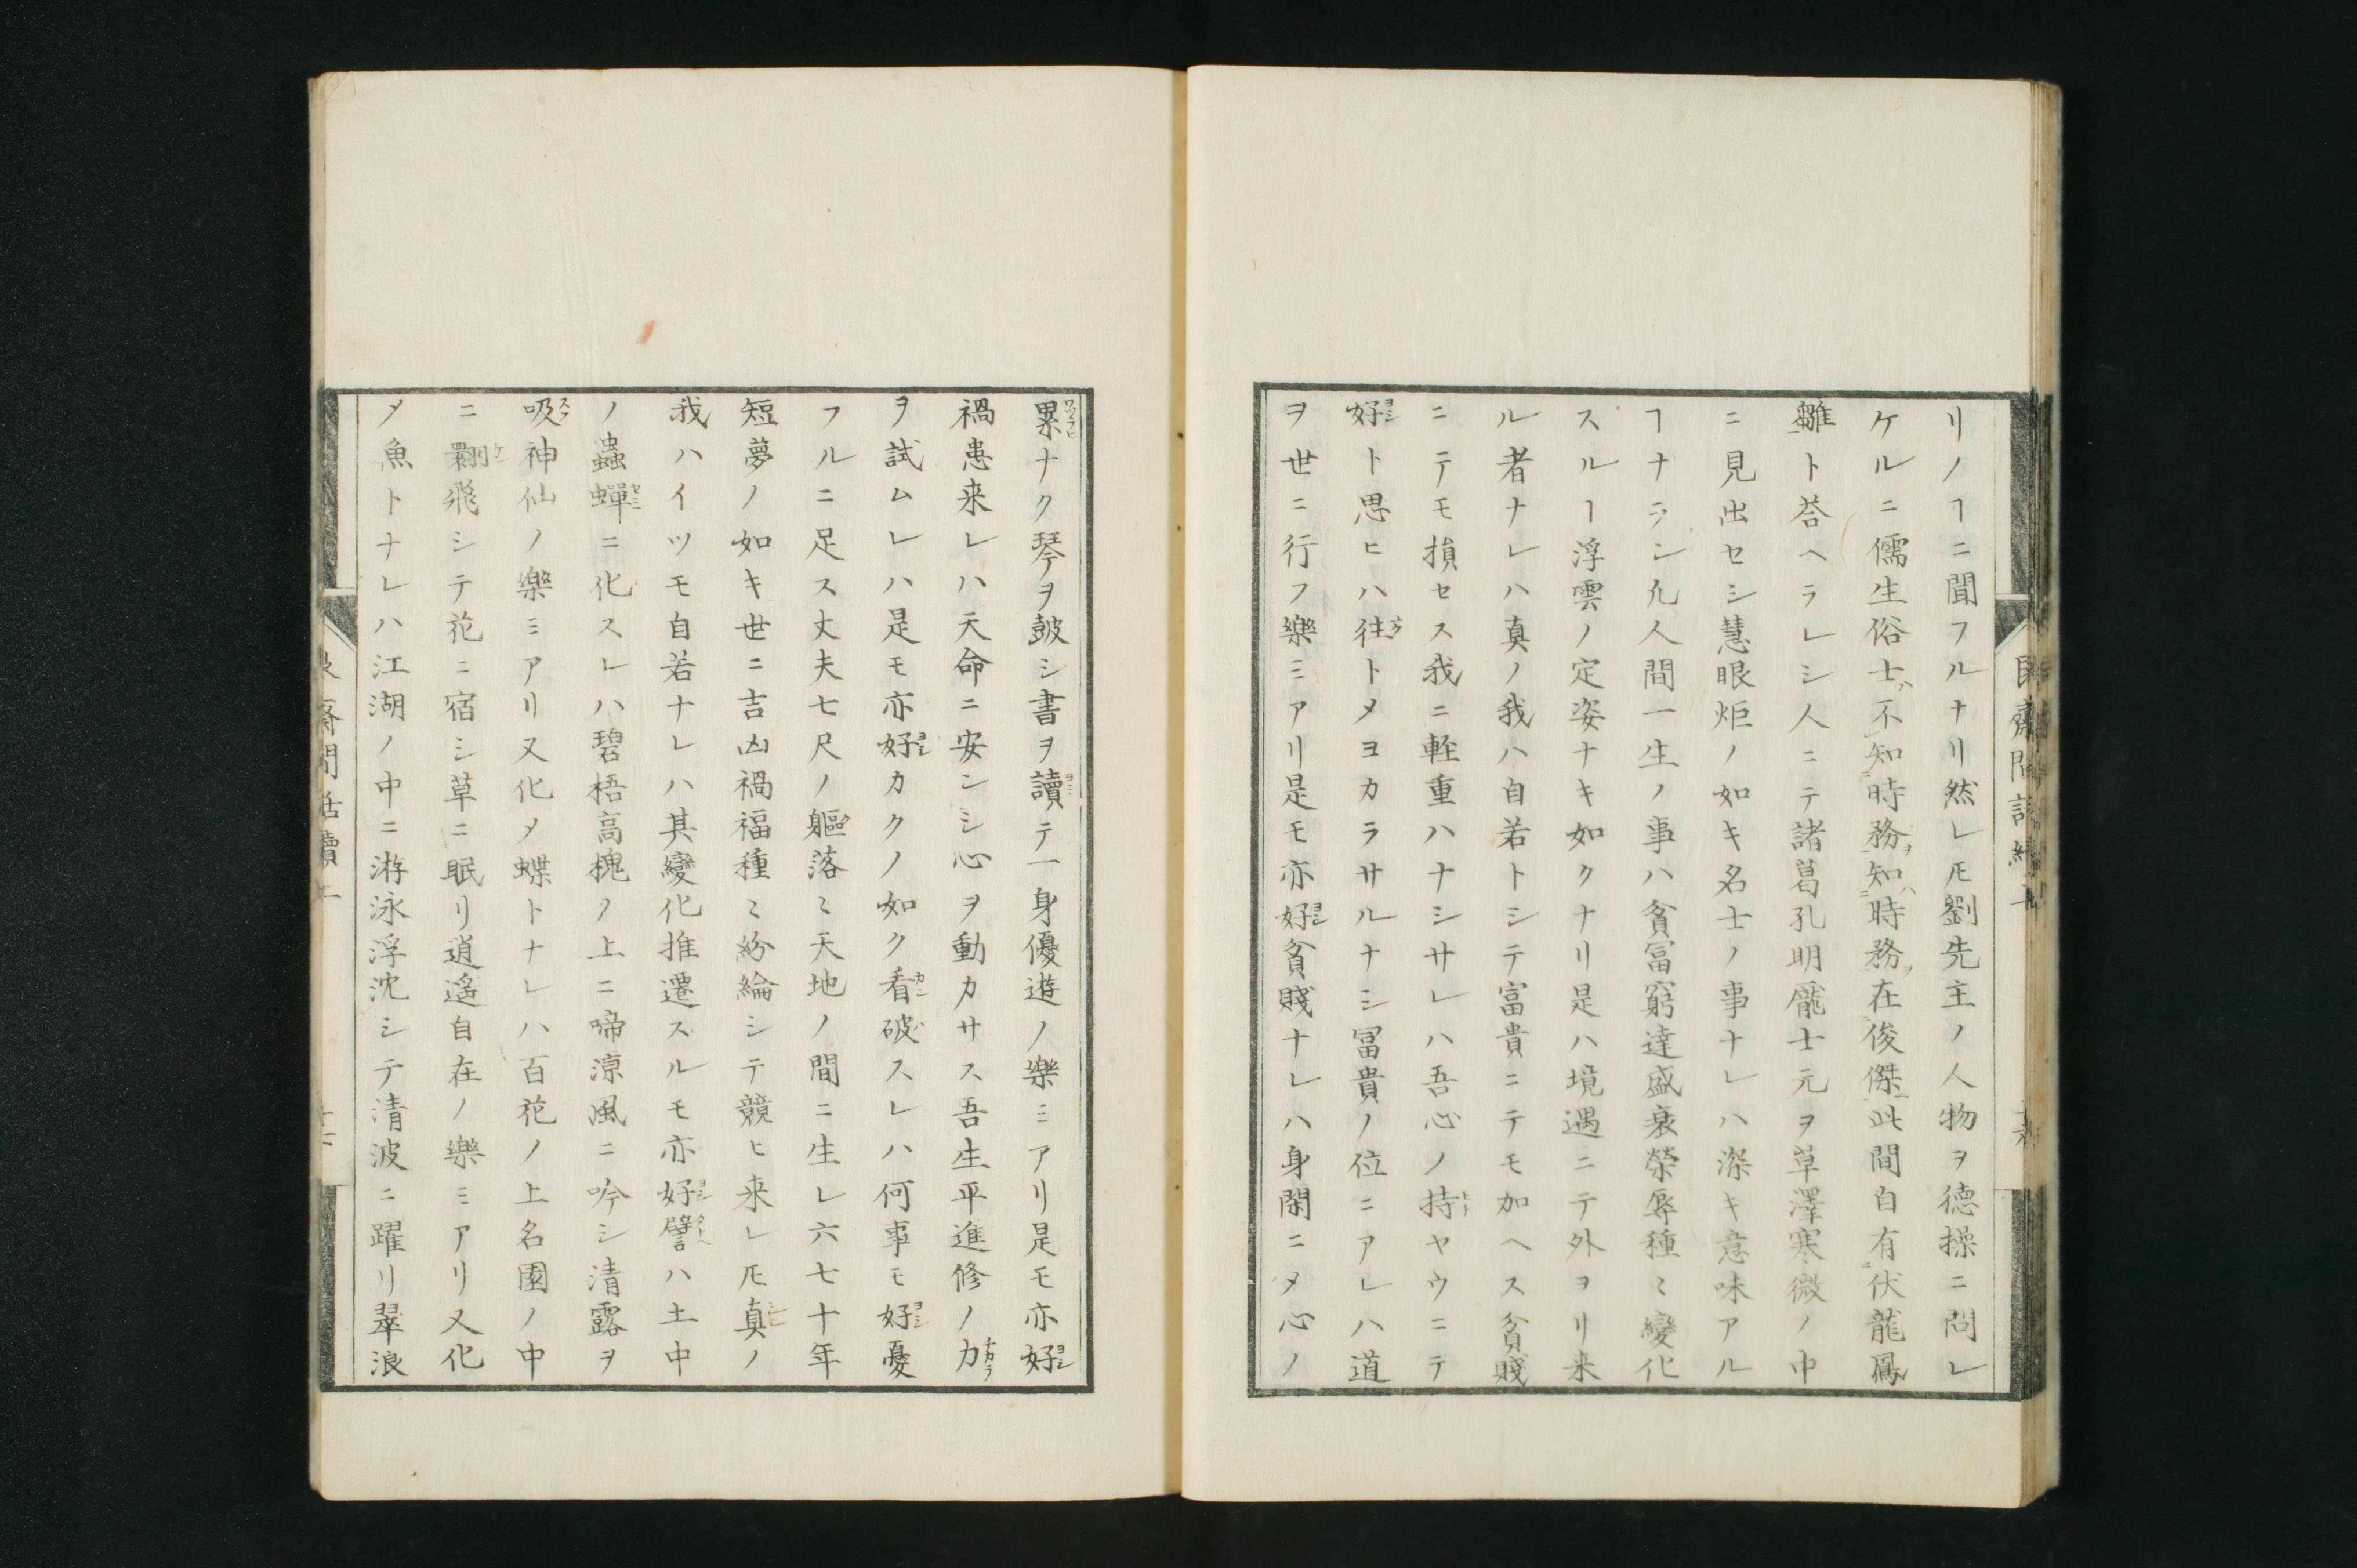 リノヿニ聞フルナリ然レ𪜈劉先主ノ人物ヲ德操ニ問レ
ケルニ儒生俗士不知時務知時務在俊傑此間自有伏龍鳳
雛ト荅ヘラレシ人ニテ諸葛孔明龐士元ヲ草澤寒微ノ中
ニ見出セシ慧眼炬ノ如キ名士ノ事ナレハ深キ意味アル
ヿナラン凡人間一生ノ事ハ貧冨窮達盛衰榮辱種〻變化
スルヿ浮雲ノ定姿ナキ如クナリ是ハ境遇ニテ外ヨリ来
ル者ナレハ真ノ我ハ自若トシテ富貴ニテモ加ヘス貧賤
ニテモ損セス我ニ軽重ハナシサレハ吾心ノ持ヤウニテ
好ト思ヒハ往トメヨカラサルナシ冨貴ノ位ニアレハ道
ヲ世ニ行フ樂ミアリ是モ亦好貧賤ナレハ身閑ニメ心ノ
累ナク琴ヲ皷シ書ヲ讀テ一身優遊ノ樂ミアリ是モ亦好
禍患来レハ天命ニ安ンシ心ヲ動カサス吾生平進修ノ力
ヲ試ムレハ是モ亦好カクノ如ク看破スレハ何事モ好憂
フルニ足ス丈夫七尺ノ軀落〻天地ノ間ニ生レ六七十年
短夢ノ如キ世ニ吉凶禍福種〻紛綸シテ競ヒ来レ𪜈真ノ
我ハイツモ自若ナレハ其變化推遷スルモ亦好譬ハ土中
ノ蟲蟬ニ化スレハ碧梧高槐ノ上ニ啼凉風ニ吟シ清露ヲ
吸神仙ノ樂ミアリ又化メ蝶トナレハ百花ノ上名園ノ中
ニ翾飛シテ花ニ宿シ草ニ眠リ逍遥自在ノ樂ミアリ又化
メ魚トナレハ江湖ノ中ニ游泳浮沈シテ清波ニ躍リ翠浪